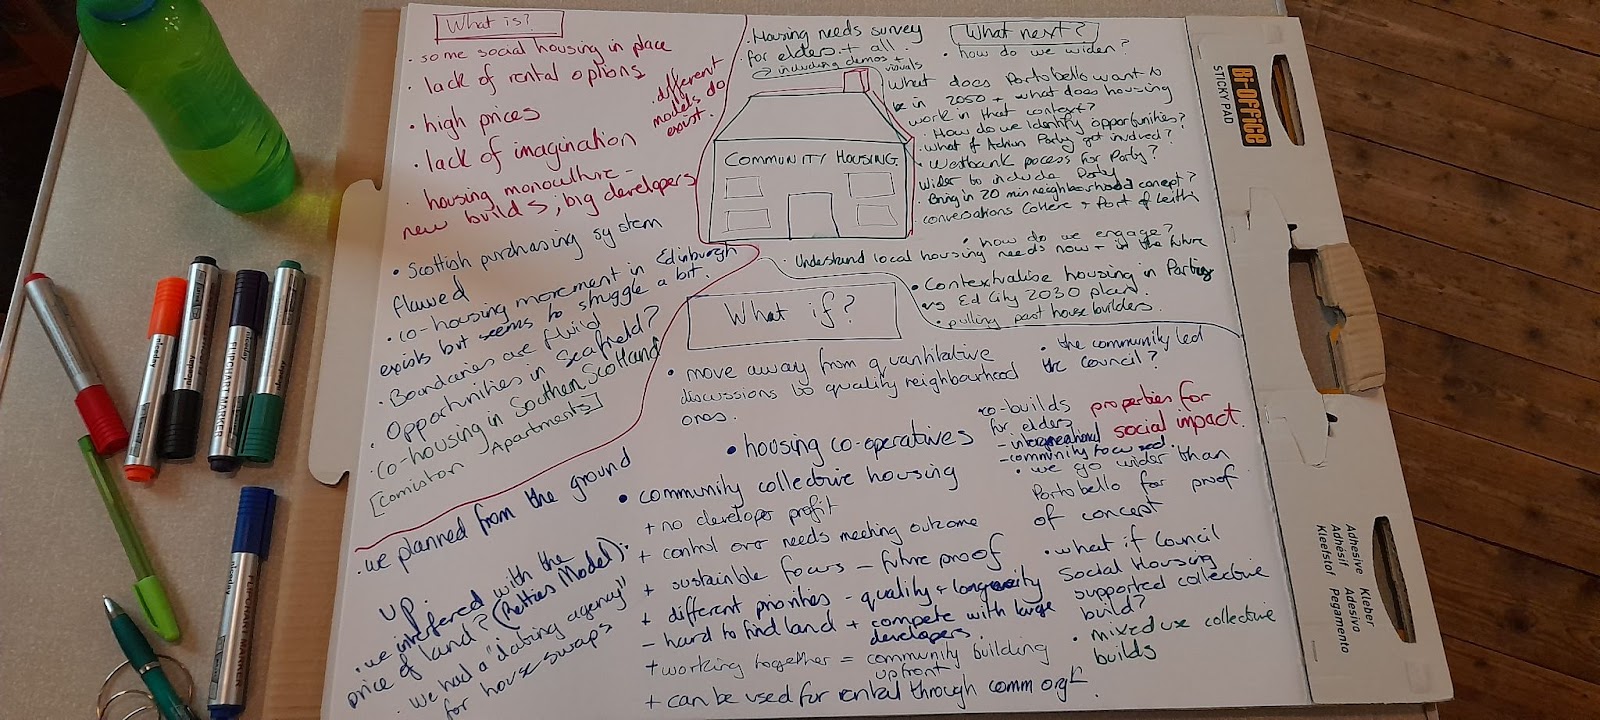 What is?
• some social housing in place
• lack of rental options
• high prices
• lack of imagination
• different
models do
exist.
• housing monoculture -
new builds, big developers
• Scottish purchasing system
flawed
• co-housing movement in Edinburgh
exists but seems to struggle a bit.
• Boundaries are fluid
• Opportunities in Seafield?
• Co-housing in Southern Scotland
[Comiston Apartments]
• Housing needs survey
for elders + all.
→ including demos +
visuals
What next?
• how do we widen?
• What does Portobello want to
be in 2050 + what does housing
work in that context?
• How do we identify opportunities?
• What if Action Porty got involved?
• Westbank process for Porty?
Wider to include Porty
• Bring in 20 min neighbourhood concept?
conversations CoHere + Port of Leith
• how do we engage?
• Understand local housing needs now + in the future
• Contextualise housing in Porty
vs Ed City 2030 plan.
• pulling past house builders.
COMMUNITY HOUSING
What if?
• move away from quantitative
discussions to quality neighbourhood
ones.
• the community led
the Council?
• housing co-operatives
co-builds
for elders
- intergenerational
- community focused.
properties for
social impact.
• community collective housing
+ no developer profit
+ control over needs meeting outcome
+ sustainable focus - future proof
+ different priorities - quality + longevity
- hard to find land + compete with large
developers.
+ working together = community building
upfront
+ can be used for rental through comm org
• we go wider than
Portobello for proof
of concept
• what if Council
Social Housing
supported collective
build?
• mixed use collective
builds
• we planned from the ground
up.
• we interfered with the
price of land? (Retties Model).
• We had a "dating agency"
for house swaps
Bi-Office
STICKY PAD
Adhesive
Adhésif
Kleefstof
Kleber
Adesivo
Pegamento
niceday
FLIPCHART MARKER
niceday
FLIPCHART MARKER